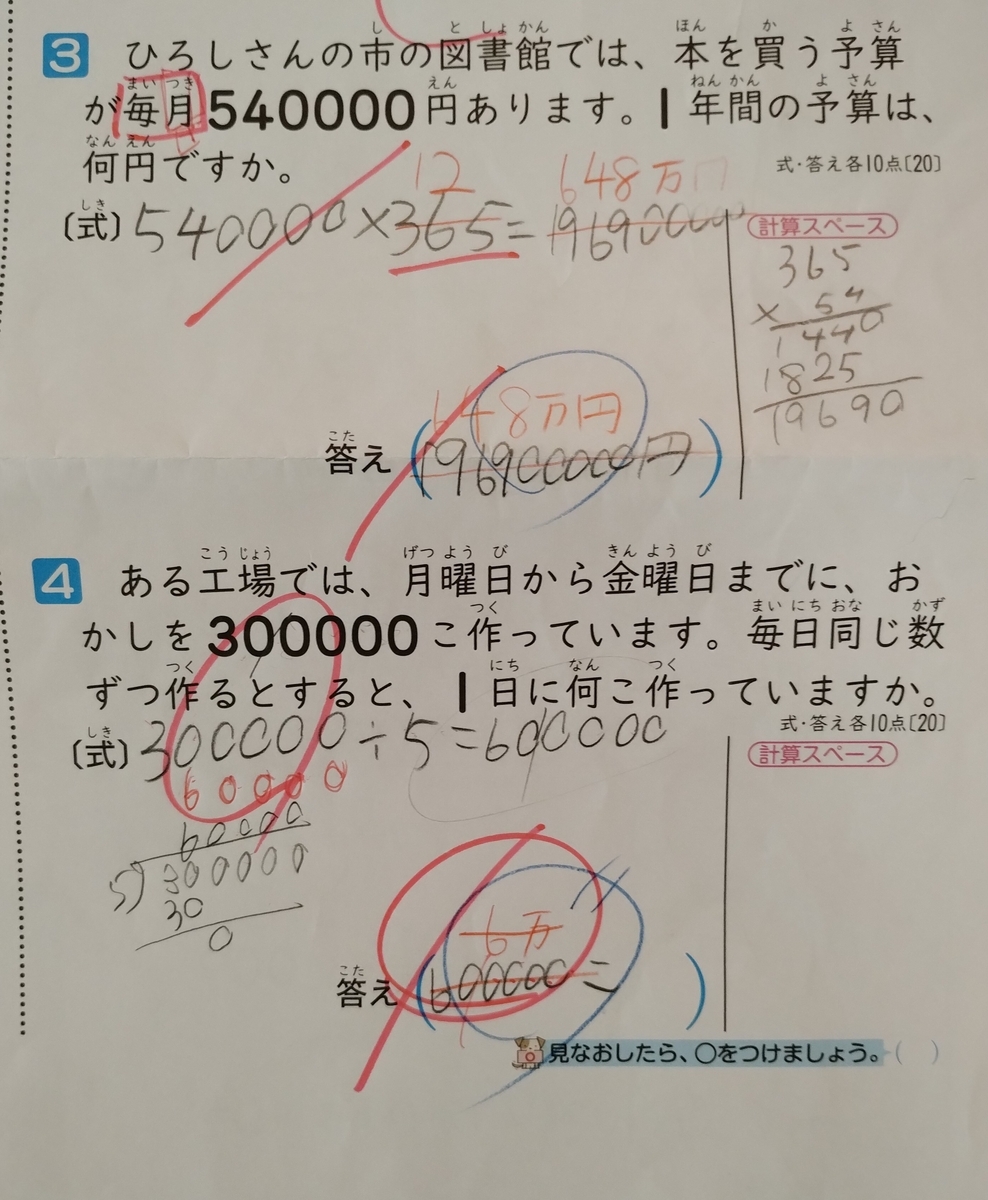 3 ひろしさんの市の図書館では、本を買う予算
が毎月540000円あります。1年間の予算は、
何円ですか。
式・答え各10点〔20〕
12 648万円
〔式〕540000×365=
計算スペース
365
×54
1440
1825
19690
648万円
答え(196900000円)
4 ある工場では、月曜日から金曜日までに、お
かしを300000こ作っています。毎日同じ数
ずつ作るとすると、1日に何こ作っていますか。
式・答え各10点〔20〕
〔式〕300000÷5=600000
計算スペース
60000
60000
5)300000
30
0
6万
答え(600000こ)
見なおしたら、○をつけましょう。( )